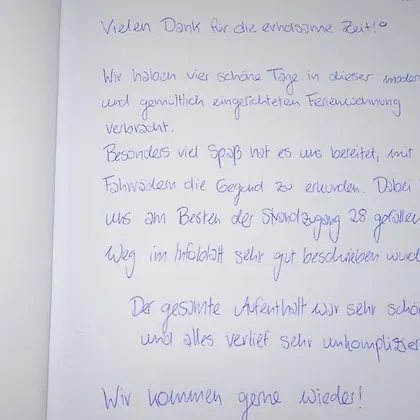 Vielen Dank für die erholsame Zeit!
Wir haben vier schöne Tage in dieser moder
und gemütlich eingerichteten Ferienwohnung
verbracht.
Besonders viel Spaß hat es uns bereitet, mit
Fahrrädern die Gegend zu erkunden. Dabei
uns am Besten der Strandzugang 28 gefallen
Weg im Infoblatt sehr gut beschrieben wurd
Der gesamte Aufenthalt war sehr schö
und alles verlief sehr unkomplizier
Wir kommen gerne wieder!